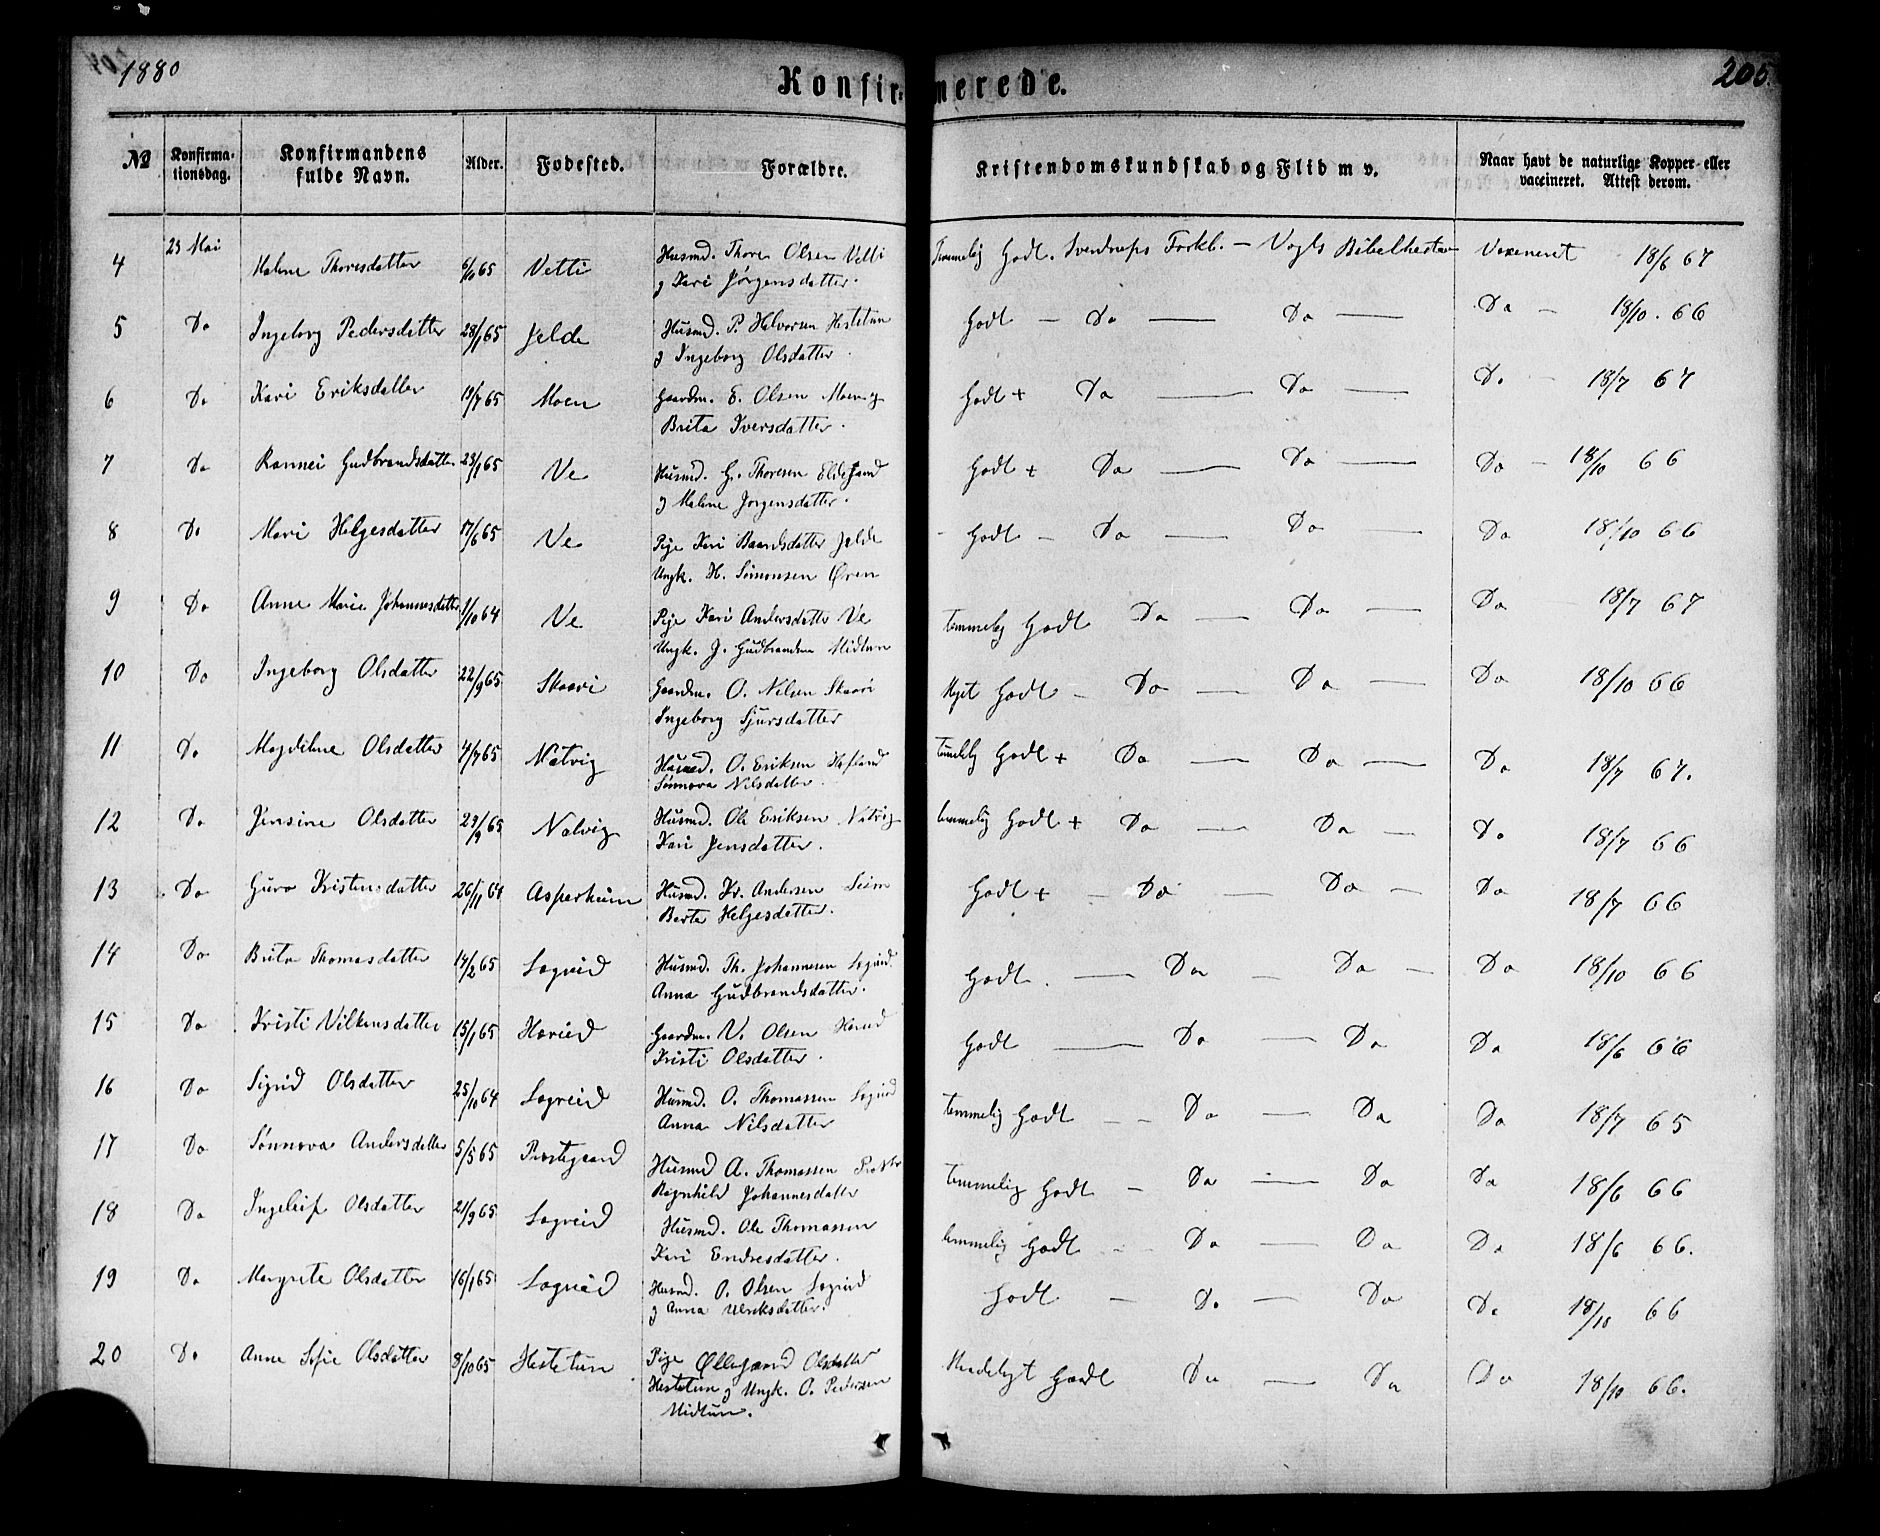 1880
Konfirmerede.
205.
№ Konfirmationsdag. Konfirmandens fulde Navn. Alder. Fødested. Forældre. Kristendomskundskab og Flid m v. Naar havt de naturlige Kopper eller vaccineret. Attest derom.
4 23 Mai Malene Thoresdatter 6/10 65 Vetti Husmd. Thore Olsen Vetti Temmelig Godt. Sverdrups Forkl. — Vogts Bibelhistor Vaxeneret 18/6 67
g Kari Jørgensdatter.
5 Do Ingeborg Pedersdatter 28/1 65 Jelde Husmd. P. Halvorsen Hestetun Godt — Do — Do — Do — 18/10. 66
g Ingeborg Olsdatter.
6 Do Kari Eriksdatter 19/7 65 Moen Gaardm. E. Olsen Moen g Godt + Do — Do — Do — 18/7 67
Brita Iversdatter.
7 Do Rannei Gudbrandsdatter 23/1 65 Ve Husmd. G. Thoresen Eldegard Godt + Do — Do — Do — 18/10 66
g Malene Jorgensdatter.
8 Do Mari Helgesdatter 17/6 65 Ve Pige Kari Baardsdatter Jelde Godt — Do — Do — Do 18/10 66
Ungk. H. Simonsen Øren
9 Do Anne Marie Johannesdatter 1/10 64 Ve Pige Kari Andersdatter Ve temmelig Godt Do — Do — Do 18/7 67
Ungk. J. Gudbrandsen Midtun
10 Do Ingeborg Olsdatter 22/9 65 Skaari Gaardm. O. Nilsen Skaari Myet Godt — Do — Do — Do 18/10 66
Ingeborg Sjursdatter
11 Do Magdilene Olsdatter 4/7 65 Natvig Husmd. O. Eriksen Hofland temelig Godt + Do — Do — Do 18/7 67.
Sønnova Nilsdatter.
12 Do Jensine Olsdatter 23/9 65 Natvig Husmd. Ole Eriksen Natvig temmelig Godt + Do — Do — Do 18/7 66
Kari Jensdatter.
13 Do Guro Kristensdatter 26/11 64 Asperheim Husmd. Kr. Andersen Seim Godt + — Do — Do — Do 18/7 66
Berte Helgesdatter.
14 Do Brita Thomasdatter 14/2 65 Sogreid Husmd. Th. Johannesen Sogreid Godt. — Do — Do — Do 18/10 66
Anna Gudbrandsdatter.
15 Do Kristi Vilkensdatter 15/1 65 Hæreid Gaardm. V. Olsen Hæreid Godt — Do — Do Do 18/6 66
Kristi Olsdatter.
16 Do Sigrid Olsdatter 25/10 64 Sogreid Husmd. O. Thomassen Sogreid temmelig Godt — Do — Do Do 18/7 65
Anna Nilsdatter
17 Do Sønnova Andersdatter 5/5 65 Prestegaard Husmd A. Thomassen temmelig Godt — Do — Do Do 18/6 66
Ragnhild Johannesdatter
18 Do Ingeleif Olsdatter 21/9 65 Sogreid Husmd. Ole Thomassen temmelig Godt — Do — Do Do 18/6 66.
Kari Endresdatter.
19 Do Margrete Olsdatter 16/1 65 Sogreid Husmd. O. Olsen Sogreid Godt — Do — Do Do 18/10 66
g Anna Ulriksdatter.
20 Do Anne Sofie Olsdatter 8/10 65 Hestetun Pige Øllegaard Olsdatter Maadeligt Godt Do — Do Do 18/10 66.
Hestetun g Ungk. O. Pedersen
Midtun.